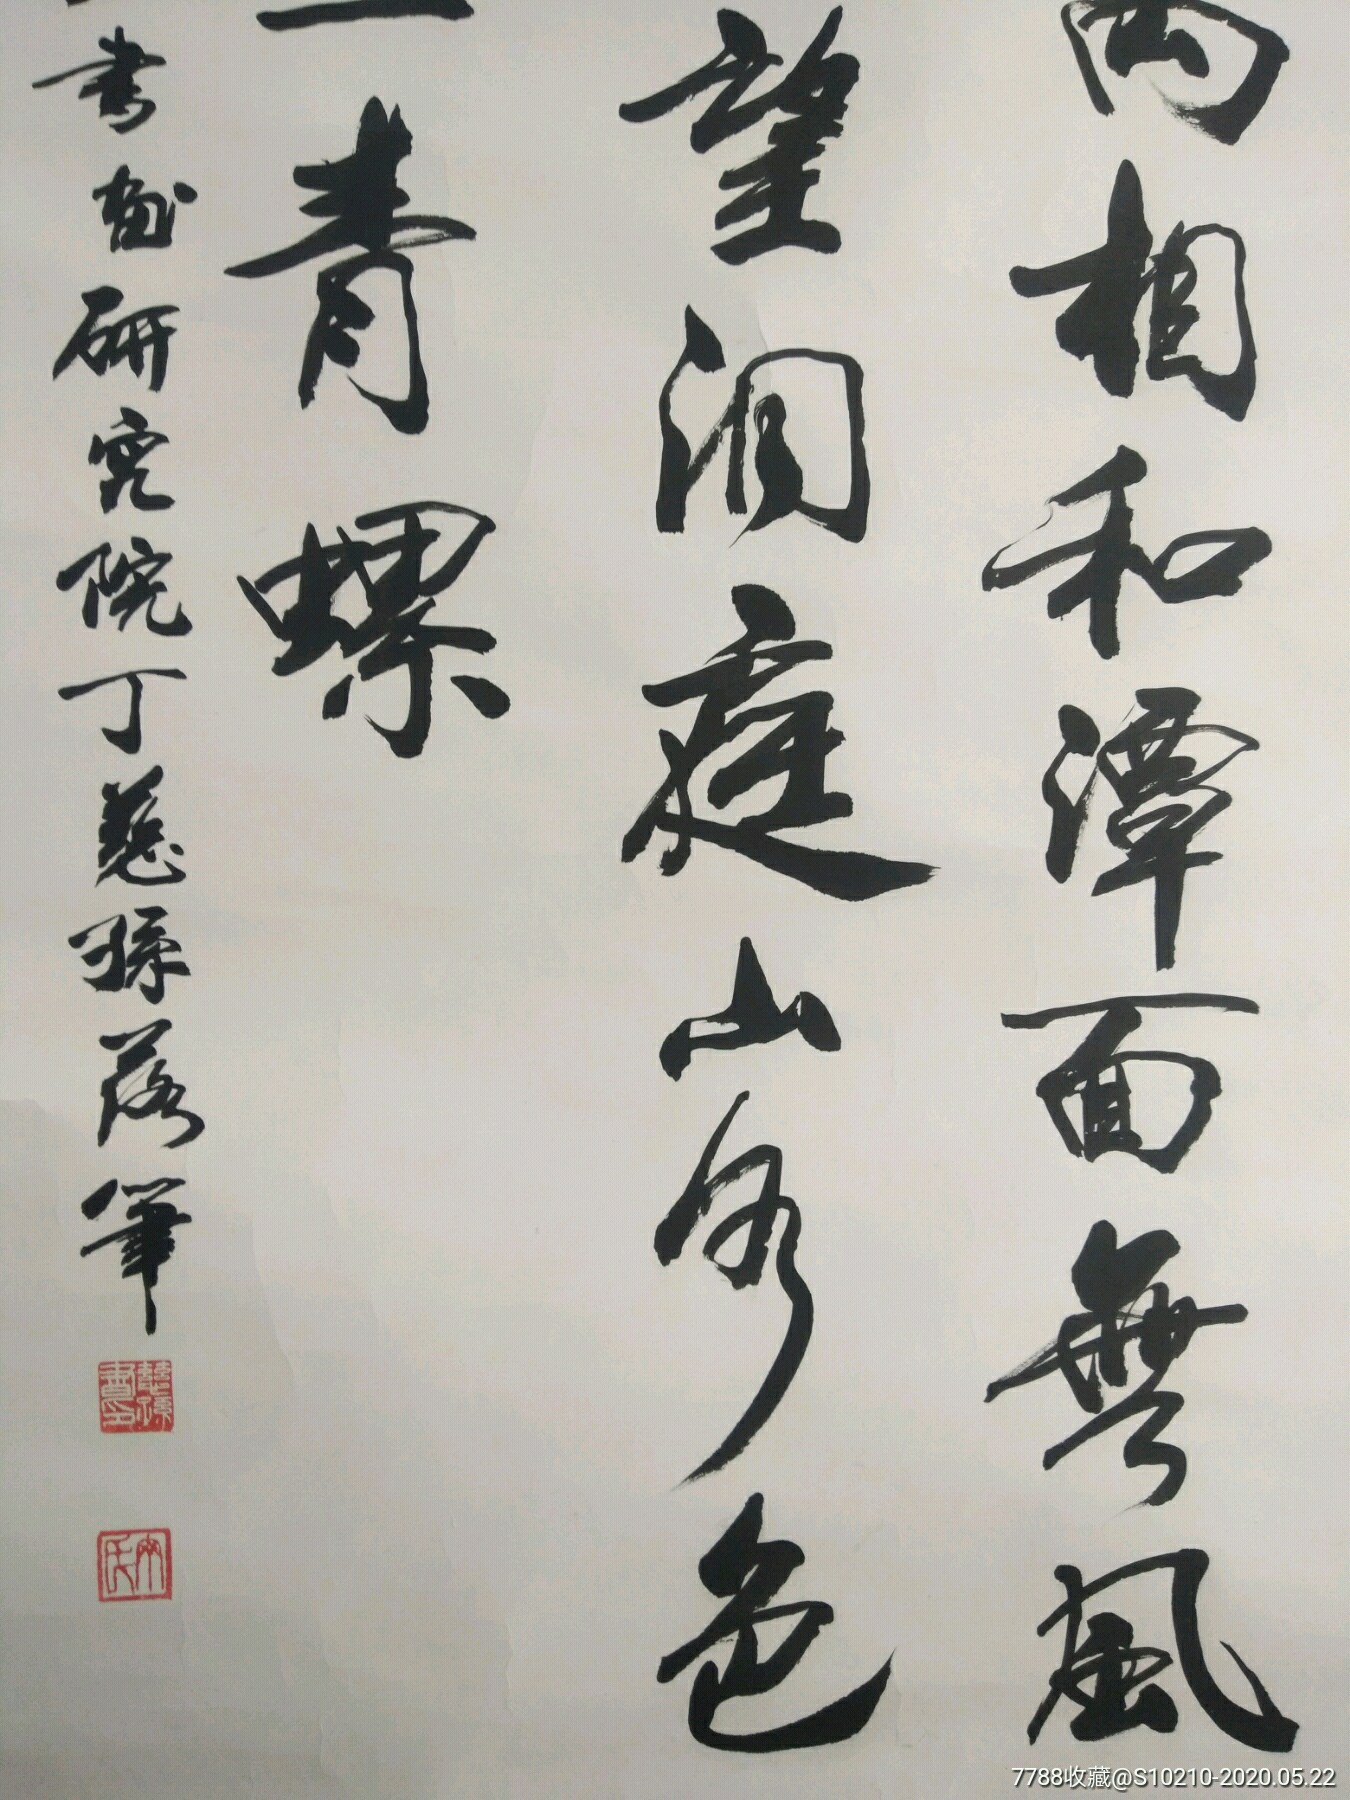 兩相和潭面無風
望洞庭山水色
一青螺
書畫研究院丁慈孫落筆
慈孫書印
7788收藏@S10210-2020.05.22